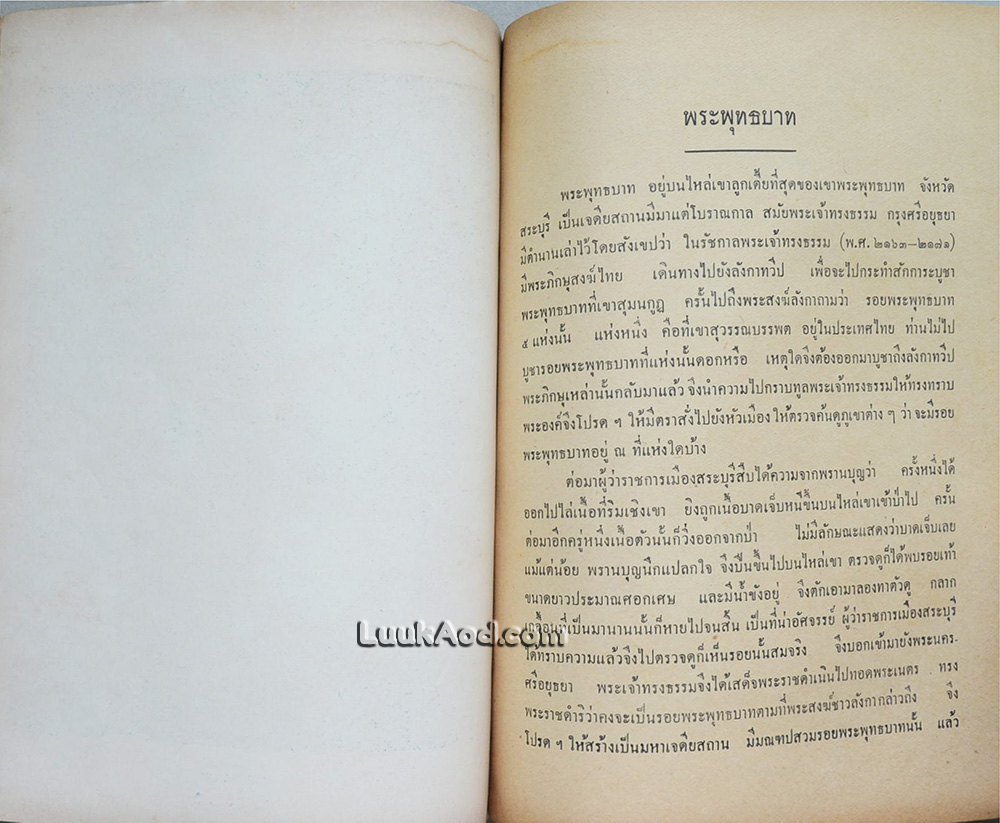 พระพุทธบาท
พระพุทธบาท อยู่บนไหล่เขาลูกเตี้ยที่สุดของเขาพระพุทธบาท จังหวัด
สระบุรี เป็นเจดียสถานมีมาแต่โบราณกาล สมัยพระเจ้าทรงธรรม กรุงศรีอยุธยา
มีตำนานเล่าไว้โดยสังเขปว่า ในรัชกาลพระเจ้าทรงธรรม (พ.ศ. ๒๑๖๓–๒๑๗๑)
มีพระภิกษุสงฆ์ไทย เดินทางไปยังลังกาทวีป เพื่อจะไปกระทำสักการะบูชา
พระพุทธบาทที่เขาสุมนกูฏ ครั้นไปถึงพระสงฆ์ลังกาถามว่า รอยพระพุทธบาท
๕ แห่งนั้น แห่งหนึ่ง คือที่เขาสุวรรณบรรพต อยู่ในประเทศไทย ท่านไม่ไป
บูชารอยพระพุทธบาทที่แห่งนั้นดอกหรือ เหตุใดจึงต้องออกมาบูชาถึงลังกาทวีป
พระภิกษุเหล่านั้นกลับมาแล้ว จึงนำความไปกราบทูลพระเจ้าทรงธรรมให้ทรงทราบ
พระองค์จึงโปรด ฯ ให้มีตราสั่งไปยังหัวเมือง ให้ตรวจค้นดูภูเขาต่าง ๆ ว่า จะมีรอย
พระพุทธบาทอยู่ ณ ที่แห่งใดบ้าง
ต่อมาผู้ว่าราชการเมืองสระบุรีสืบได้ความจากพรานบุญว่า ครั้งหนึ่งได้
ออกไปไล่เนื้อที่ริมเชิงเขา ยิงถูกเนื้อบาดเจ็บหนีขึ้นบนไหล่เขาเข้าป่าไป ครั้น
ต่อมาอีกครู่หนึ่งเนื้อตัวนั้นก็วิ่งออกจากป่า ไม่มีลักษณะแสดงว่าบาดเจ็บเลย
แม้แต่น้อย พรานบุญนึกแปลกใจ จึงปีนขึ้นไปบนไหล่เขา ตรวจดูก็ได้พบรอยเท้า
ขนาดยาวประมาณศอกเศษ และมีน้ำขังอยู่ จึงตักเอามาลองทาตัวดู กลาก
เกลื้อนที่เป็นมานานนั้นก็หายไปจนสิ้น เป็นที่น่าอัศจรรย์ ผู้ว่าราชการเมืองสระบุรี
ได้ทราบความแล้วจึงไปตรวจดูก็เห็นรอยนั้นสมจริง จึงบอกเข้ามายังพระนคร-
ศรีอยุธยา พระเจ้าทรงธรรมจึงได้เสด็จพระราชดำเนินไปทอดพระเนตร ทรง
พระราชดำริว่าคงจะเป็นรอยพระพุทธบาทตามที่พระสงฆ์ชาวลังกากล่าวถึง จึง
โปรด ฯ ให้สร้างเป็นมหาเจดียสถาน มีมณฑปสวมรอยพระพุทธบาทนั้น แล้ว
LuukAod.com